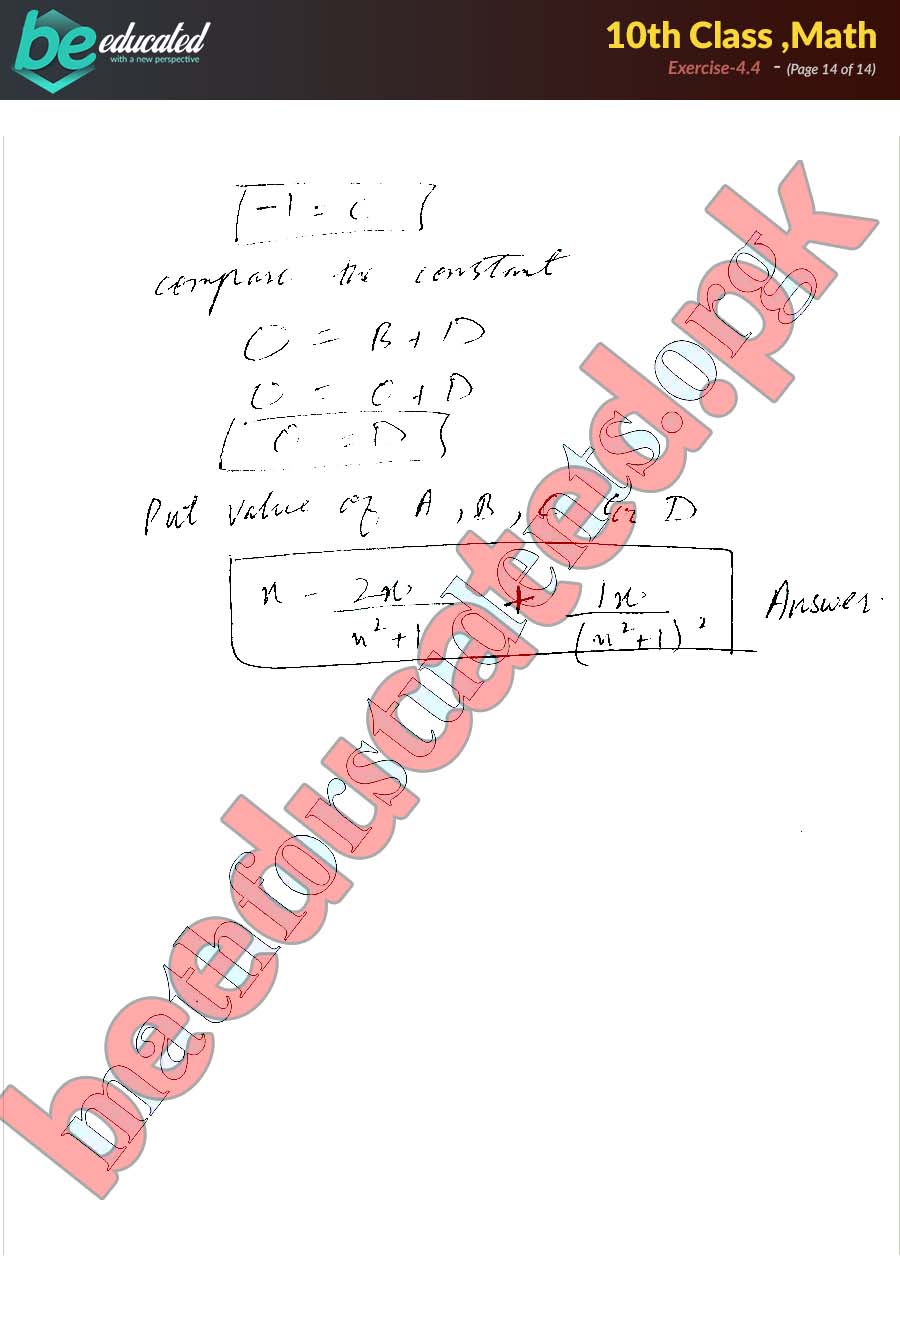 be educated
with a new perspective
10th Class ,Math
Exercise-4.4 - (Page 14 of 14)
-1 = C
compare the constant
0 = B + D
0 = 0 + D
0 = D
Put value of A, B, C & D
x - 2x / x² + 1 + 1x / (x² + 1)² Answer.
beeducated.pk
mathforstudents.org